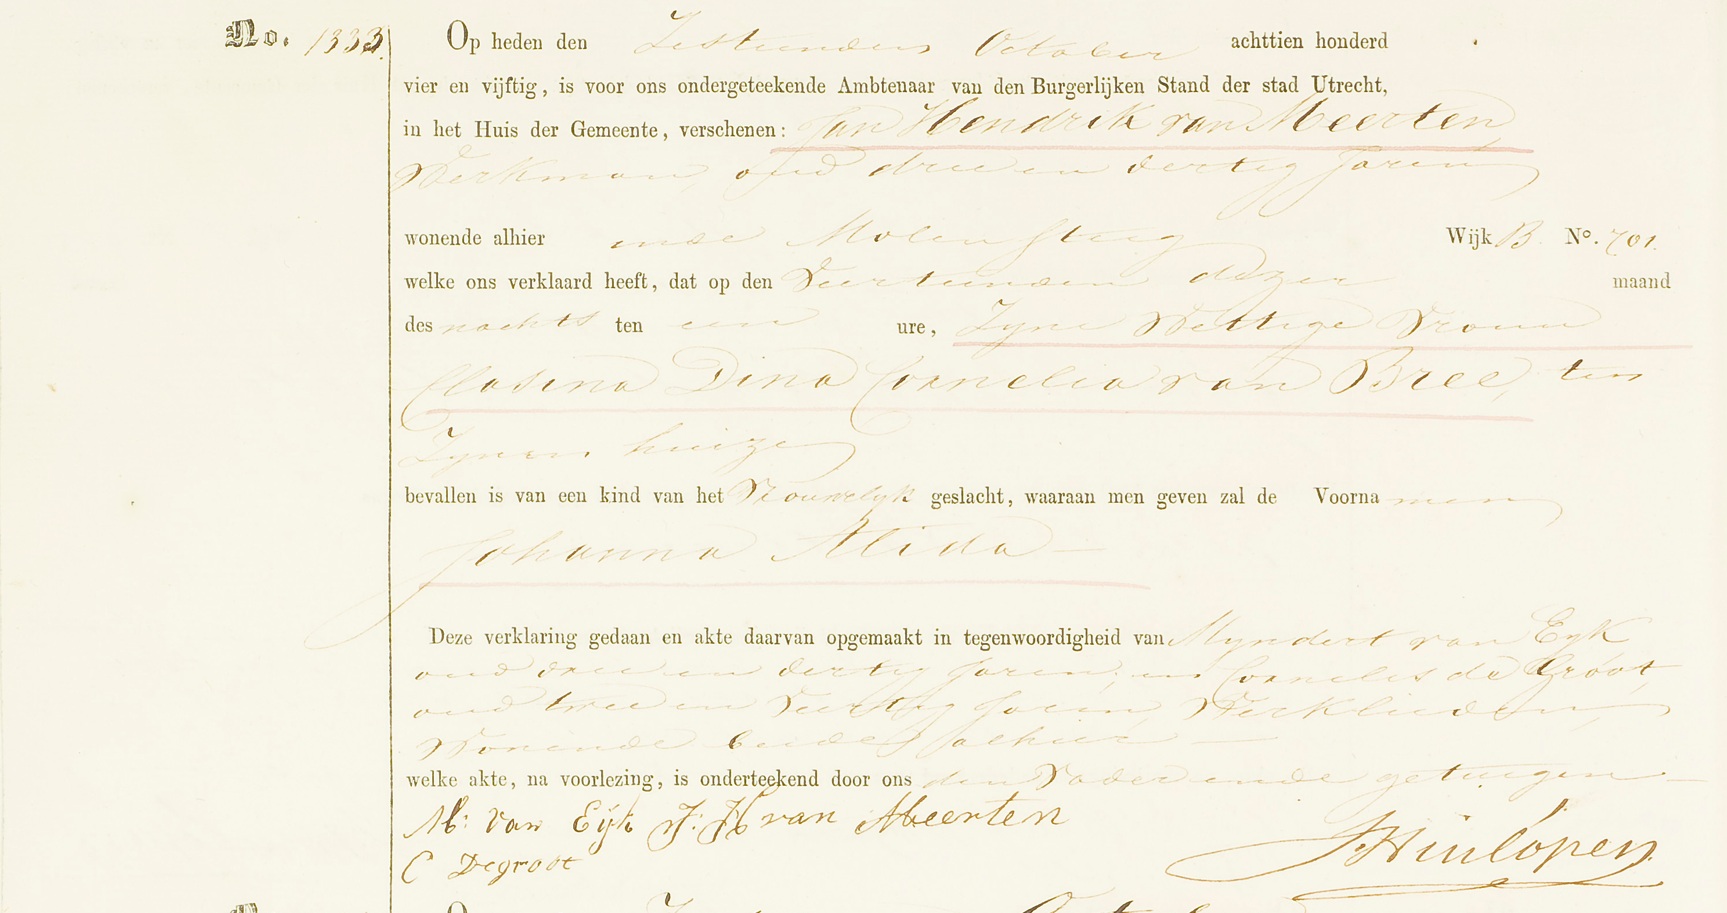 No. 1333. Op heden den Zestienden October achttien honderd
vier en vijftig, is voor ons ondergeteekende Ambtenaar van den Burgerlijken Stand der stad Utrecht,
in het Huis der Gemeente, verschenen: Jan Hendrik van Meerten
Werkman, oud drie en dertig Jaren,
wonende alhier in de Molen steeg Wijk B. No. 701.
welke ons verklaard heeft, dat op den Veertienden dezer maand
des nachts ten een ure, Zyne Wettige Vrouw
Clasina Dina Cornelia van Bree, ten
Zynen huize
bevallen is van een kind van het Vrouwelyk geslacht, waaraan men geven zal de Voornamen
Johanna Alida
Deze verklaring gedaan en akte daarvan opgemaakt in tegenwoordigheid van Myndert van Eyk
oud drie en dertig Jaren, en Cornelis de Groot,
oud twee en Veertig Jaren, Werklieden,
Wonende beide alhier
welke akte, na voorlezing, is onderteekend door ons den Vader en de getuigen
M: van Eyk J: H van Meerten
C Degroot JHinlopen.